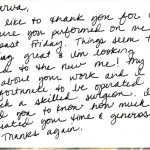 like to thank you for
you performed on me
past Friday. Things seem t
great & im looking
to the new me! my
about your work and
to be operated
a skilled surgeon. I
you to know how much
your time & generos
Thanks again.